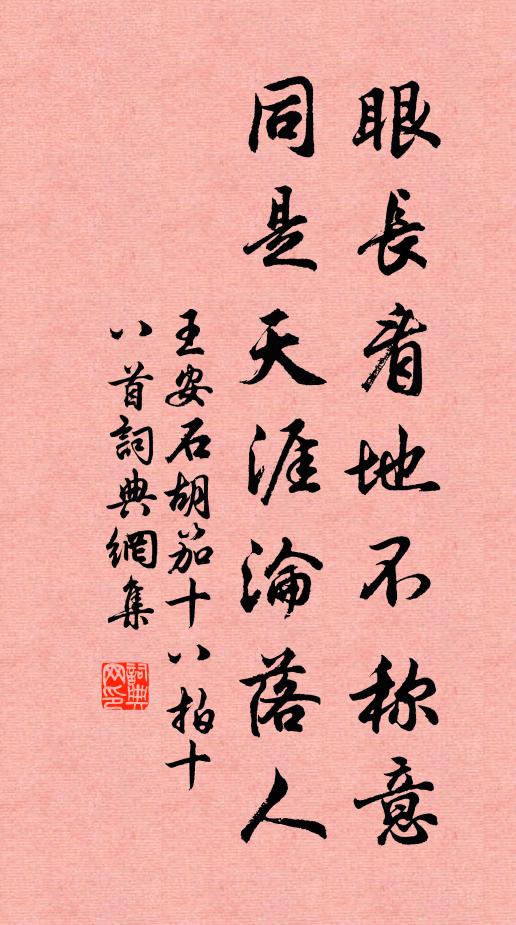 眼長看地不称意
同是天涯淪落人
王安石胡笳十八拍十
八首詞典網集
詞典
网印